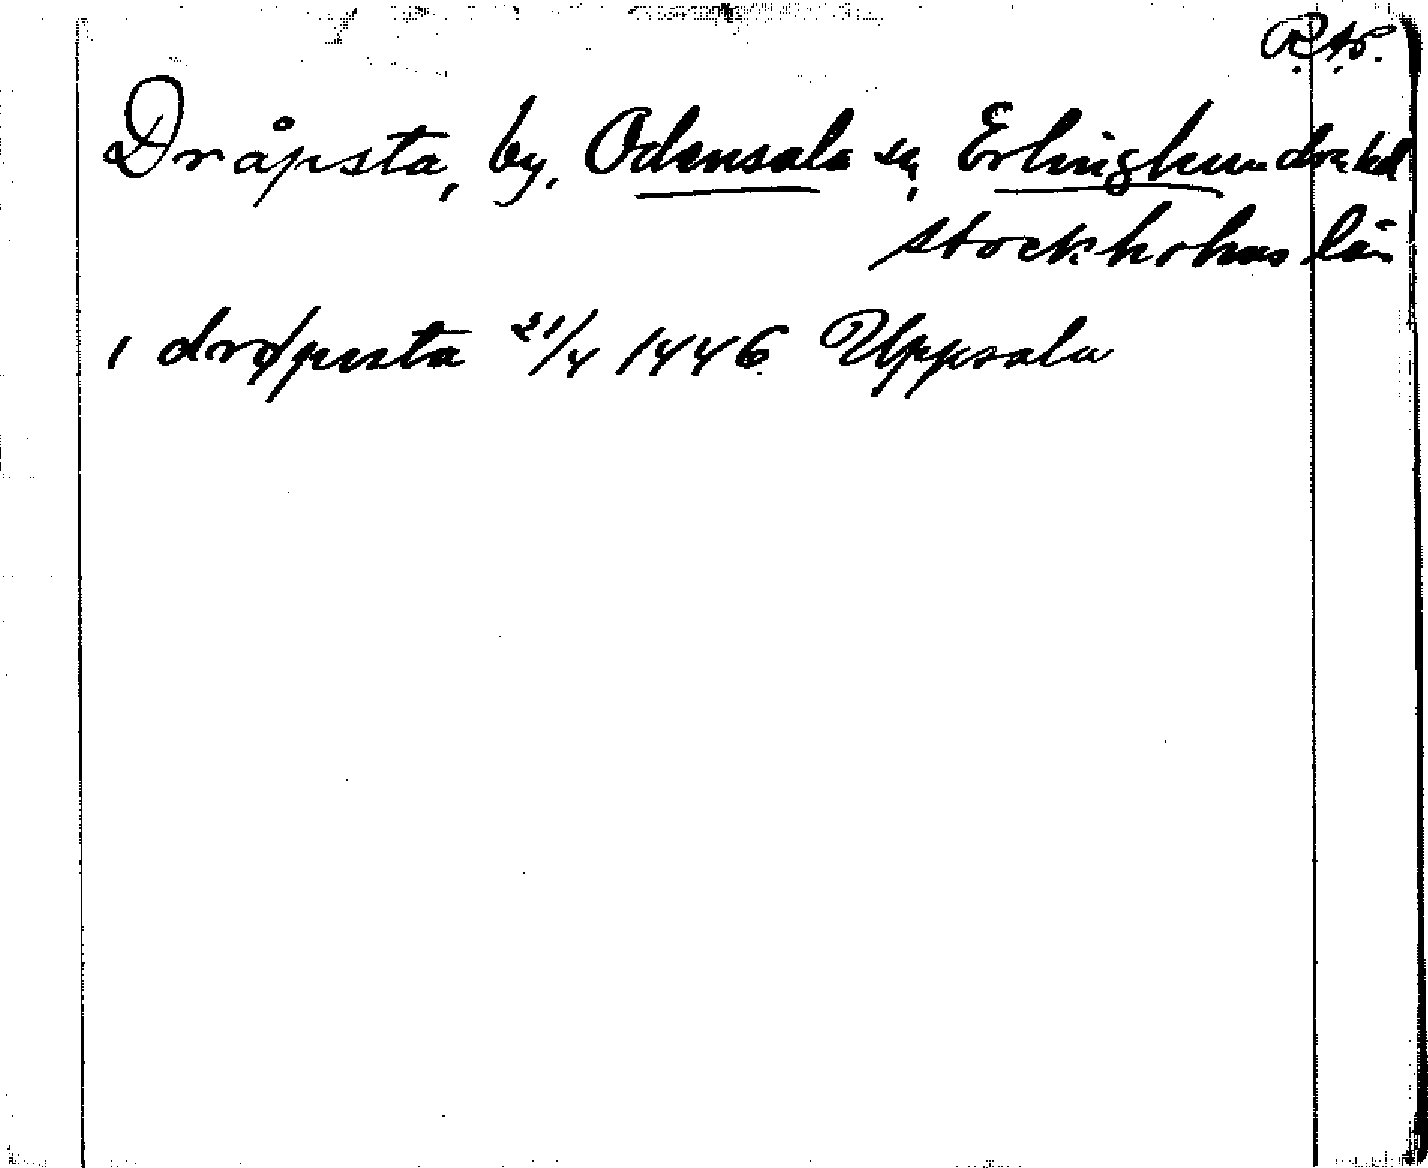 R.A.
Dråpsta, by, Odensala sn, Erlinghundra hd
Stockholms län
i drøpsta 21/4 1446 Uppsala